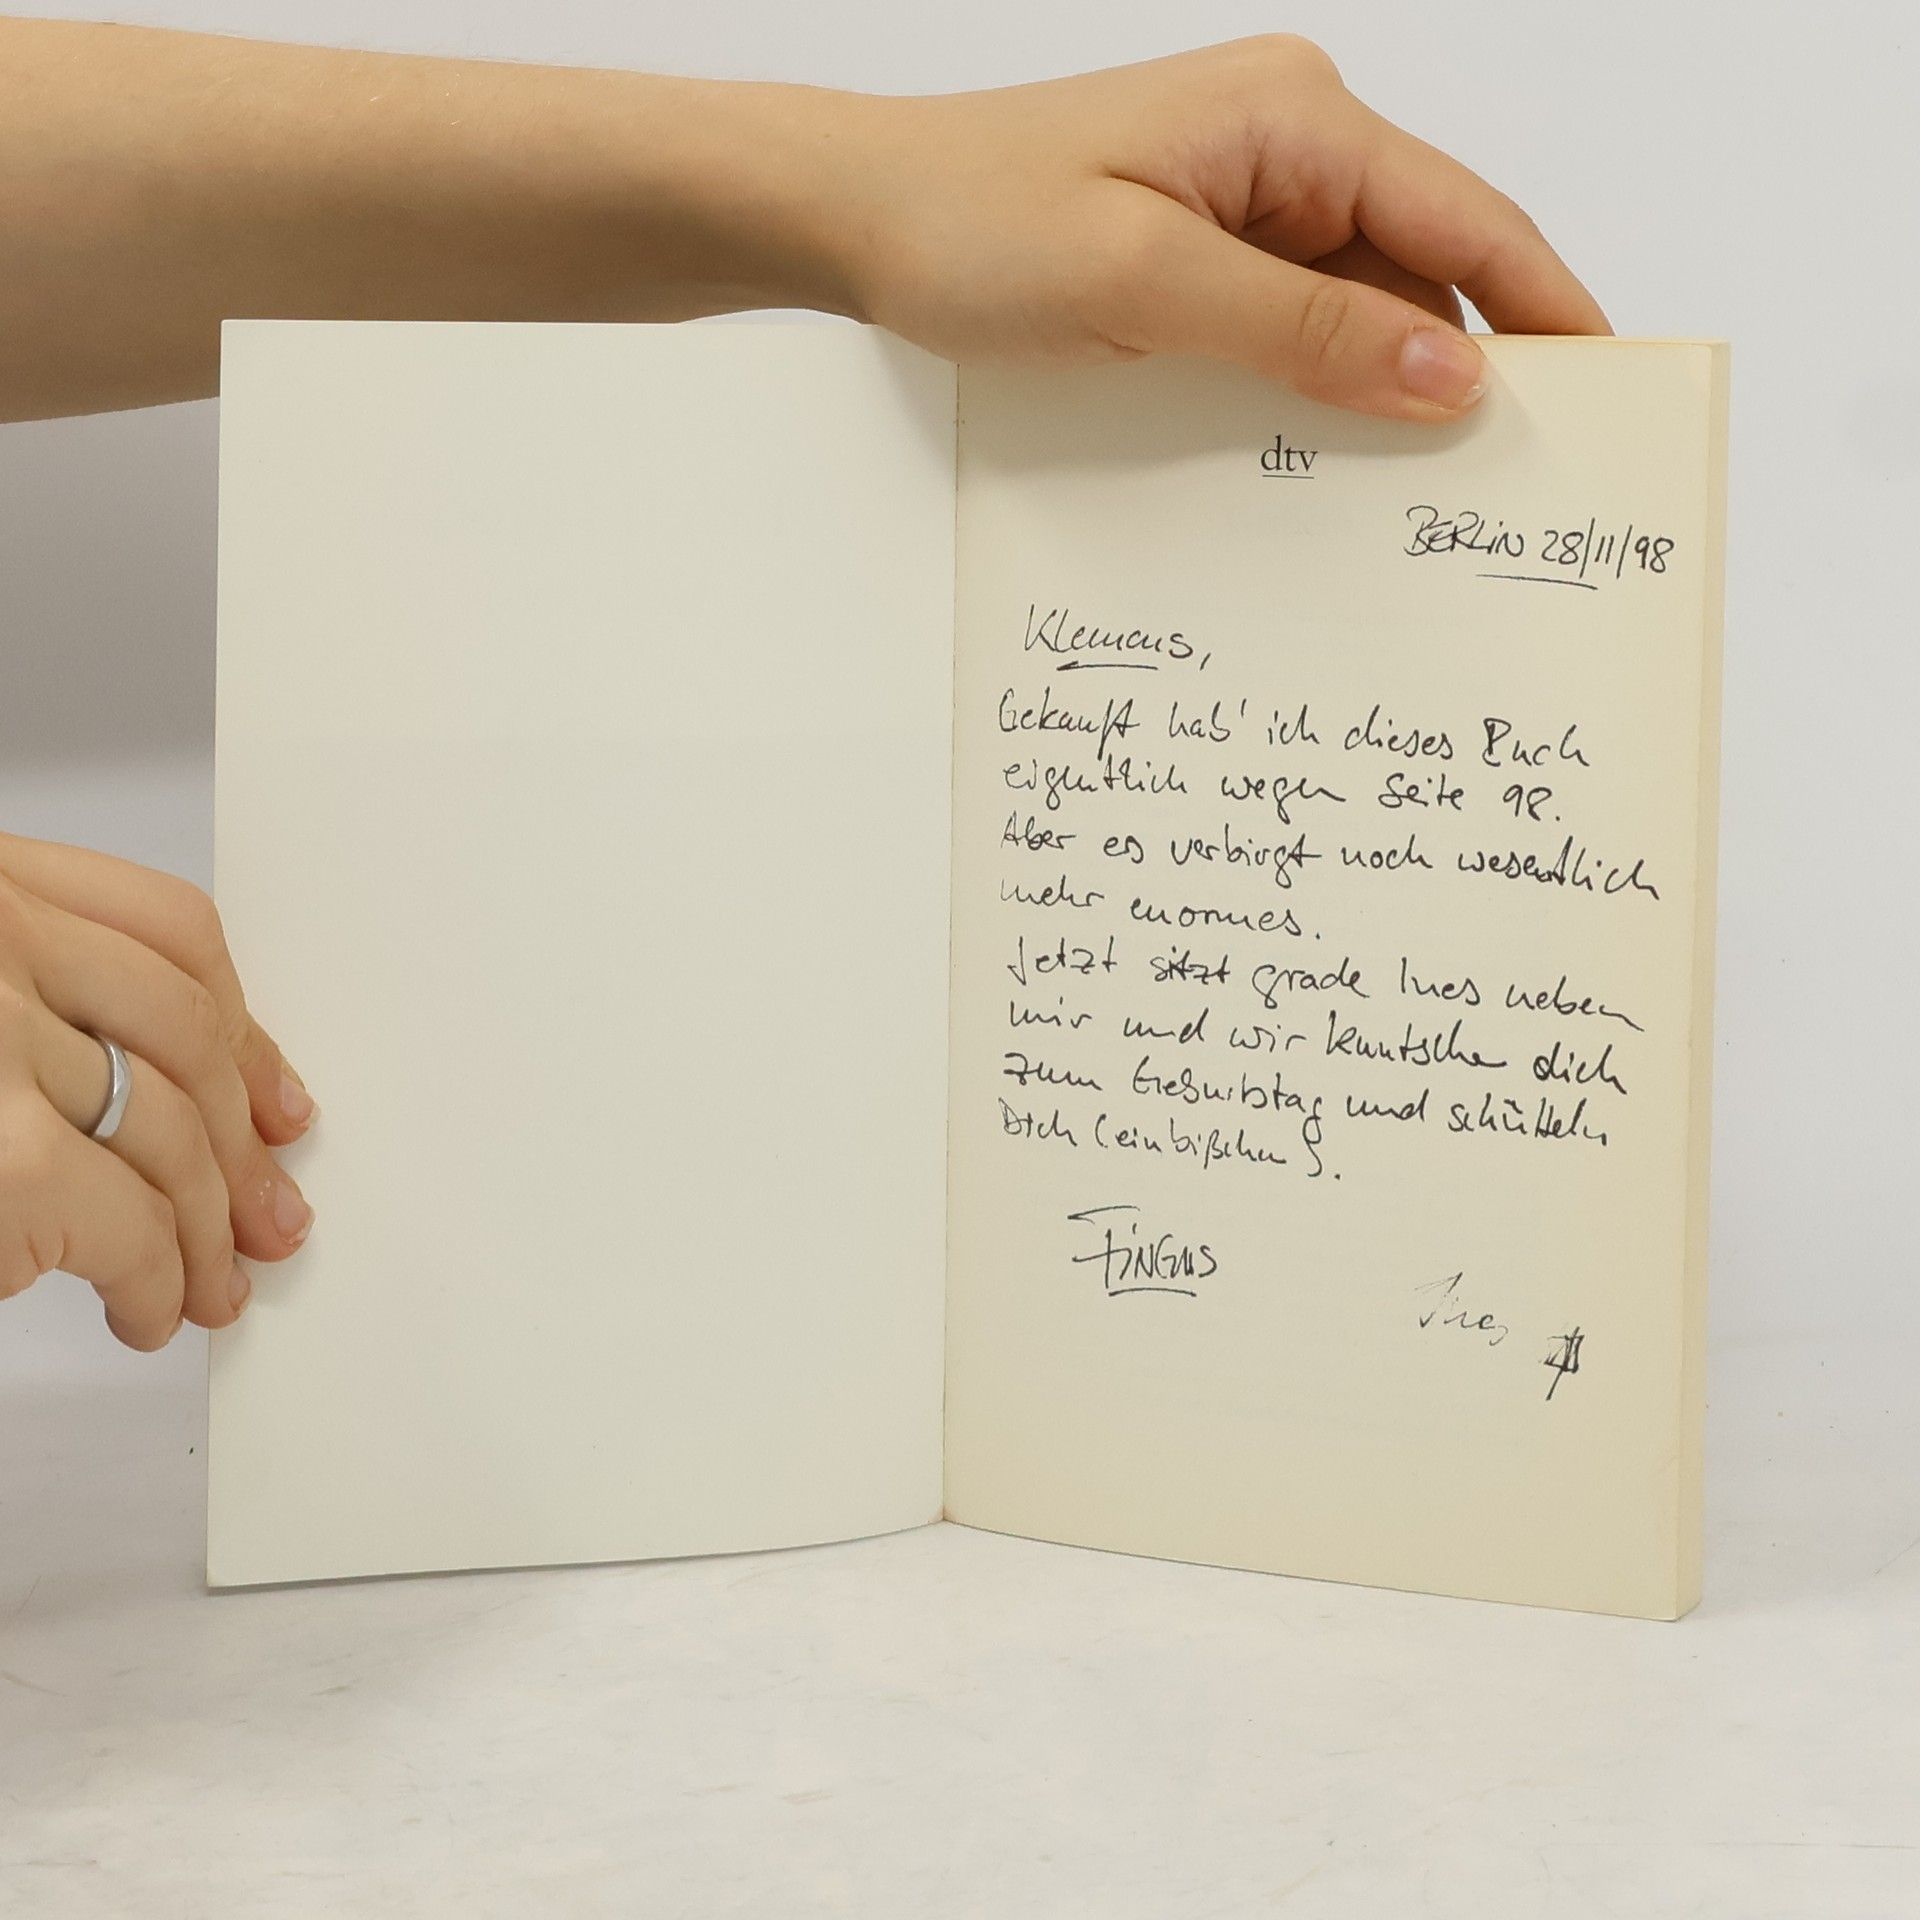 dtv
BERLiN 28/11/98
Klemens,
Gekauft hab' ich dieses Buch
eigentlich wegen Seite 98.
Aber es verbirgt noch wesentlich
mehr enormes.
Jetzt sitzt grade Ines neben
mir und wir knutschen dich
zum Geburtstag und schütteln
Dich (ein bißchen).
FiNGUS
Ines